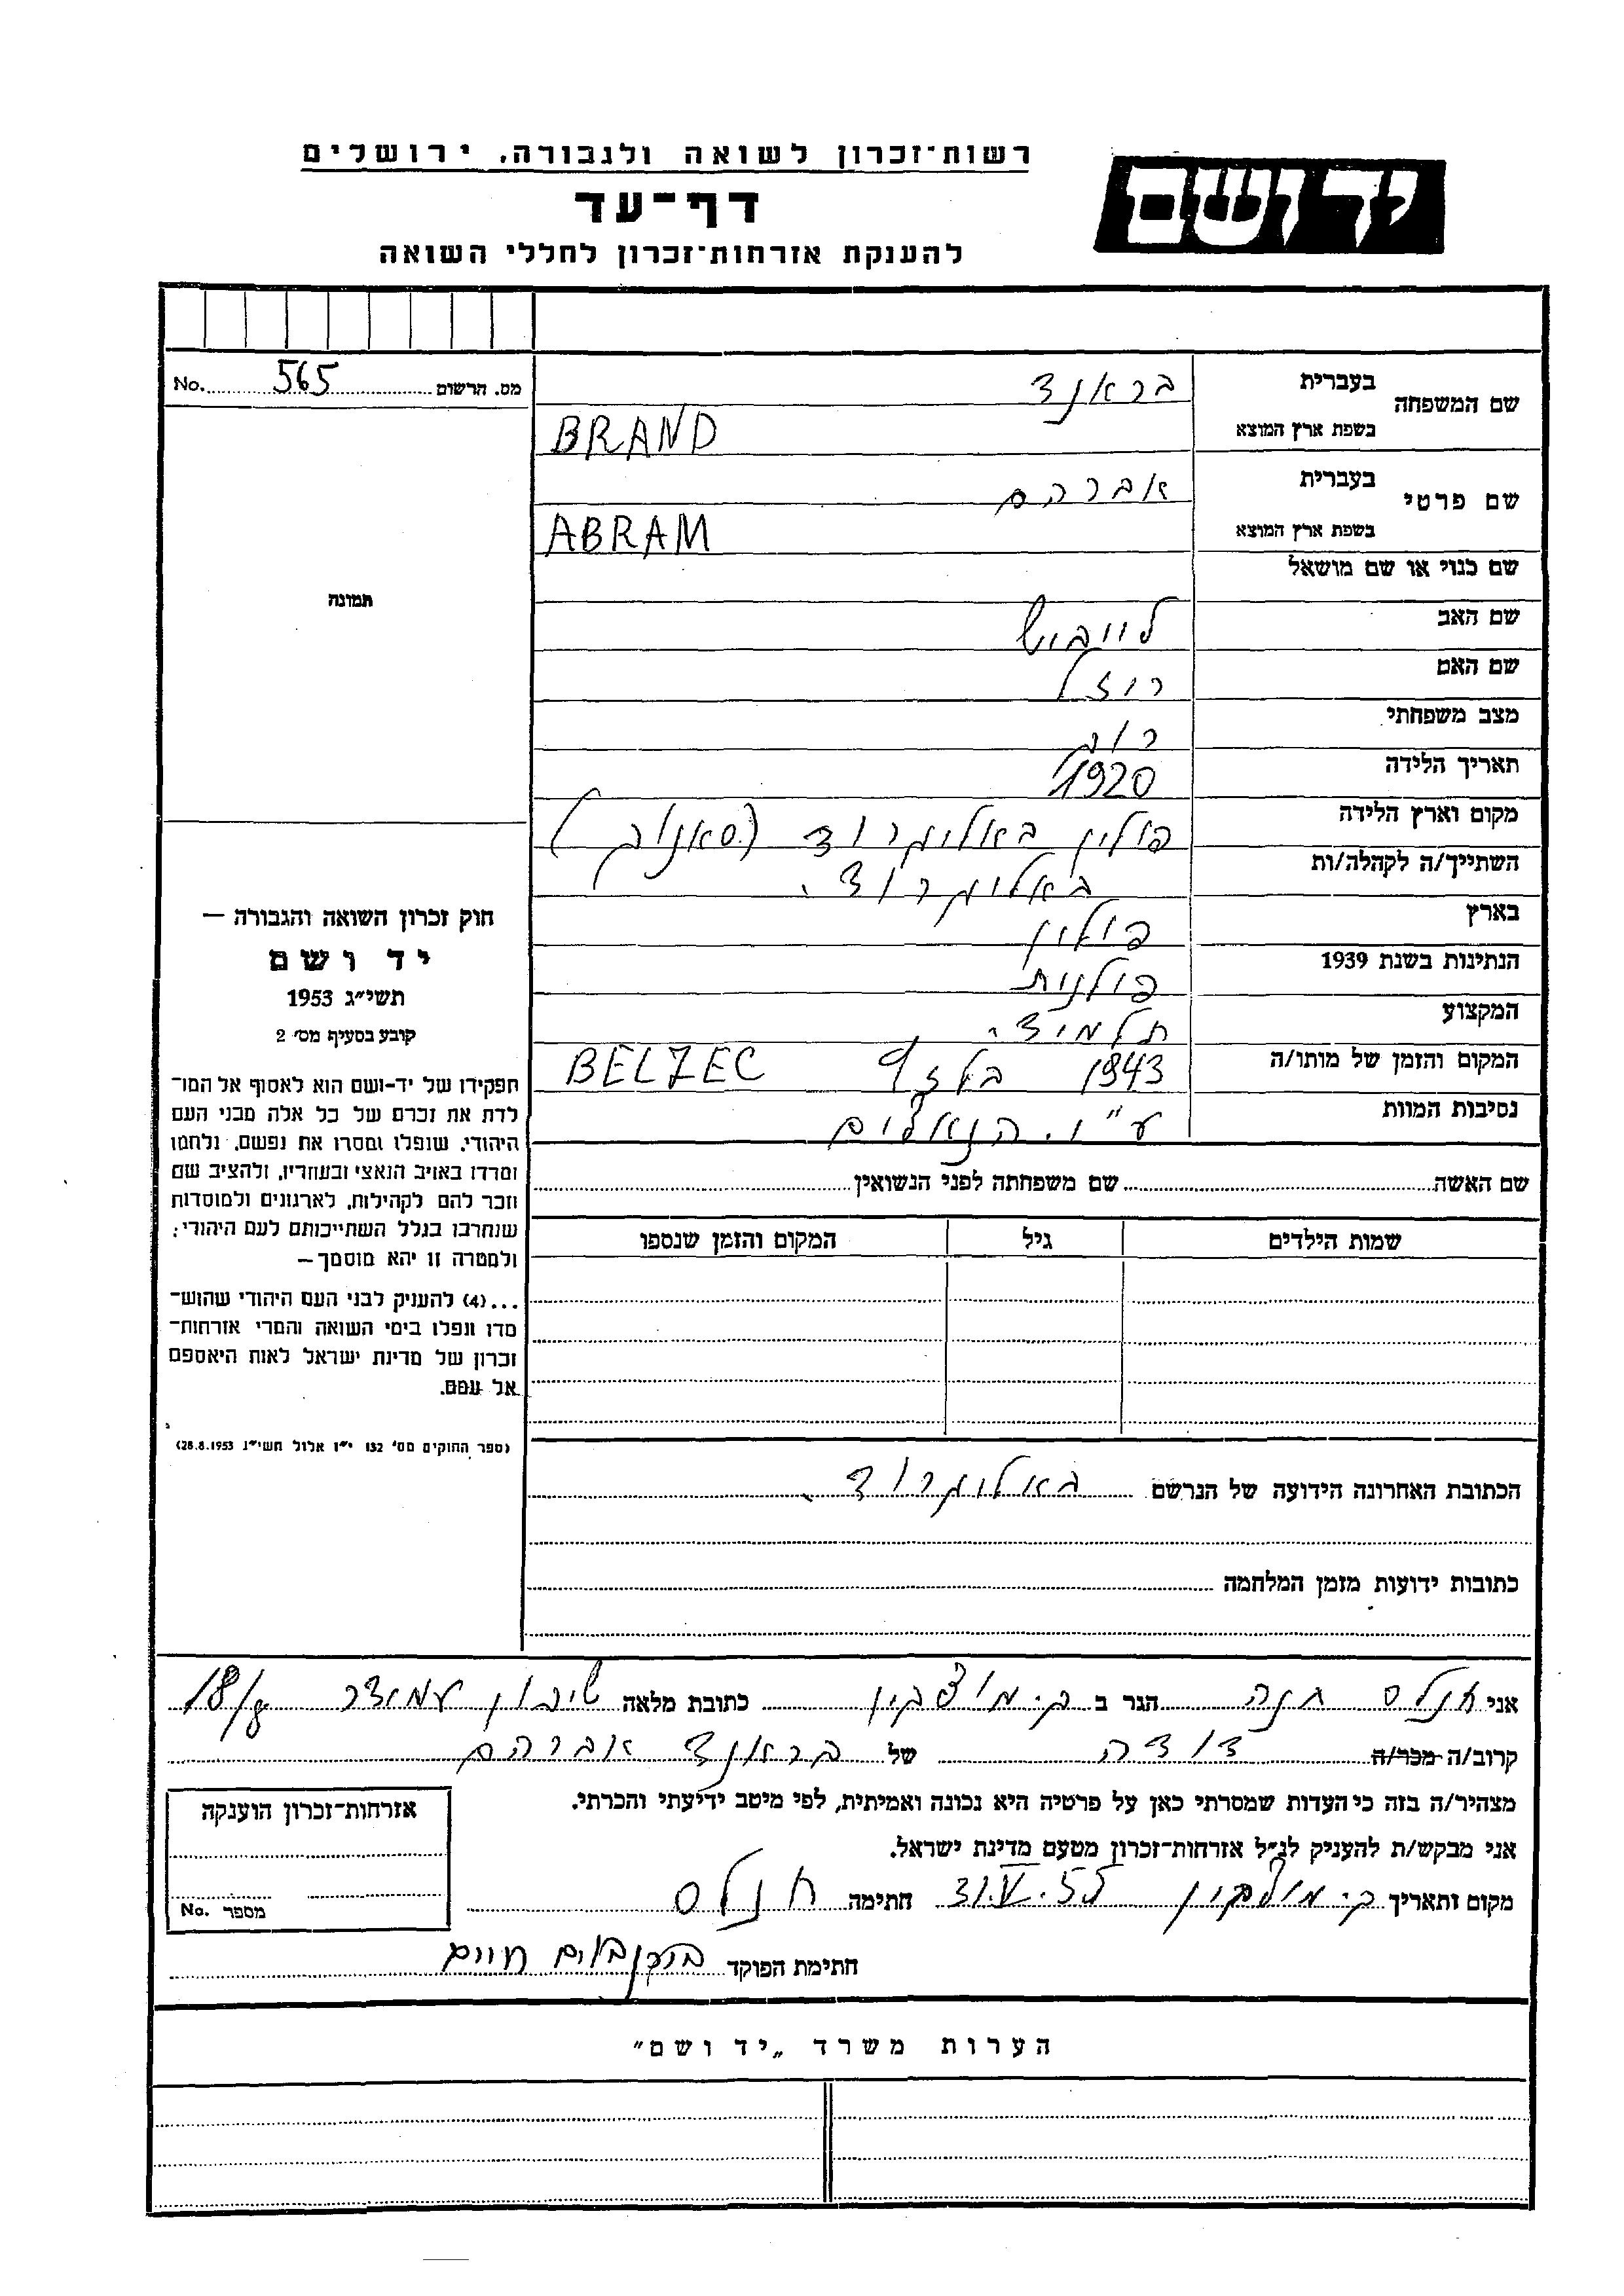 רשות־זכרון לשואה ולגבורה, ירושלים
יד ושם
דף־עד
להענקת אזרחות־זכרון לחללי השואה
מס. הרשום 565 No.
שם המשפחה בעברית בראנד
בשפת ארץ המוצא BRAND
שם פרטי בעברית אברהם
בשפת ארץ המוצא ABRAM
שם כנוי או שם מושאל
שם האב לייביש
שם האם רוזל
מצב משפחתי רווק
תאריך הלידה 1920
מקום וארץ הלידה פולין באליגרוד (סאנוק)
השתייך/ה לקהלה/ות באליגרוד.
בארץ פולין
הנתינות בשנת 1939 פולנית
המקצוע תלמיד.
המקום והזמן של מותו/ה 1943 בלזץ BELZEC
נסיבות המוות ע"י הנאצים
שם האשה שם משפחתה לפני הנשואין
שמות הילדים גיל המקום והזמן שנספו
הכתובת האחרונה הידועה של הנרשם באליגרוד.
כתובות ידועות מזמן המלחמה
תמונה
חוק זכרון השואה והגבורה —
יד ושם
תשי״ג 1953
קובע בסעיף מס׳ 2
תפקידו של יד-ושם הוא לאסוף אל המו־
לדת את זכרם של כל אלה מבני העם
היהודי, שנפלו ומסרו את נפשם, נלחמו
ומרדו באויב הנאצי ובעוזריו, ולהציב שם
וזכר להם לקהילות, לארגונים ולמוסדות
שנחרבו בגלל השתייכותם לעם היהודי;
ולמטרה זו יהא מוסמך —
...(4) להעניק לבני העם היהודי שהוש־
מדו ונפלו בימי השואה והמרי אזרחות־
זכרון של מדינת ישראל לאות היאספם
אל עמם.
(ספר החוקים מס׳ 132 י״ז אלול תשי״ג 28.8.1953)
אני חנה הגר ב ק. מוצקין כתובת מלאה שיכון עמידר 18/8
קרוב/ה מכר/ה דודה של בראנד אברהם
מצהיר/ה בזה כי העדות שמסרתי כאן על פרטיה היא נכונה ואמיתית, לפי מיטב ידיעתי והכרתי.
אני מבקש/ת להעניק לנ״ל אזרחות־זכרון מטעם מדינת ישראל.
מקום ותאריך ק. מוצקין 31.V.55 חתימה
חתימת הפוקד חיים
אזרחות־זכרון הוענקה
מספר No.
הערות משרד „יד ושם״